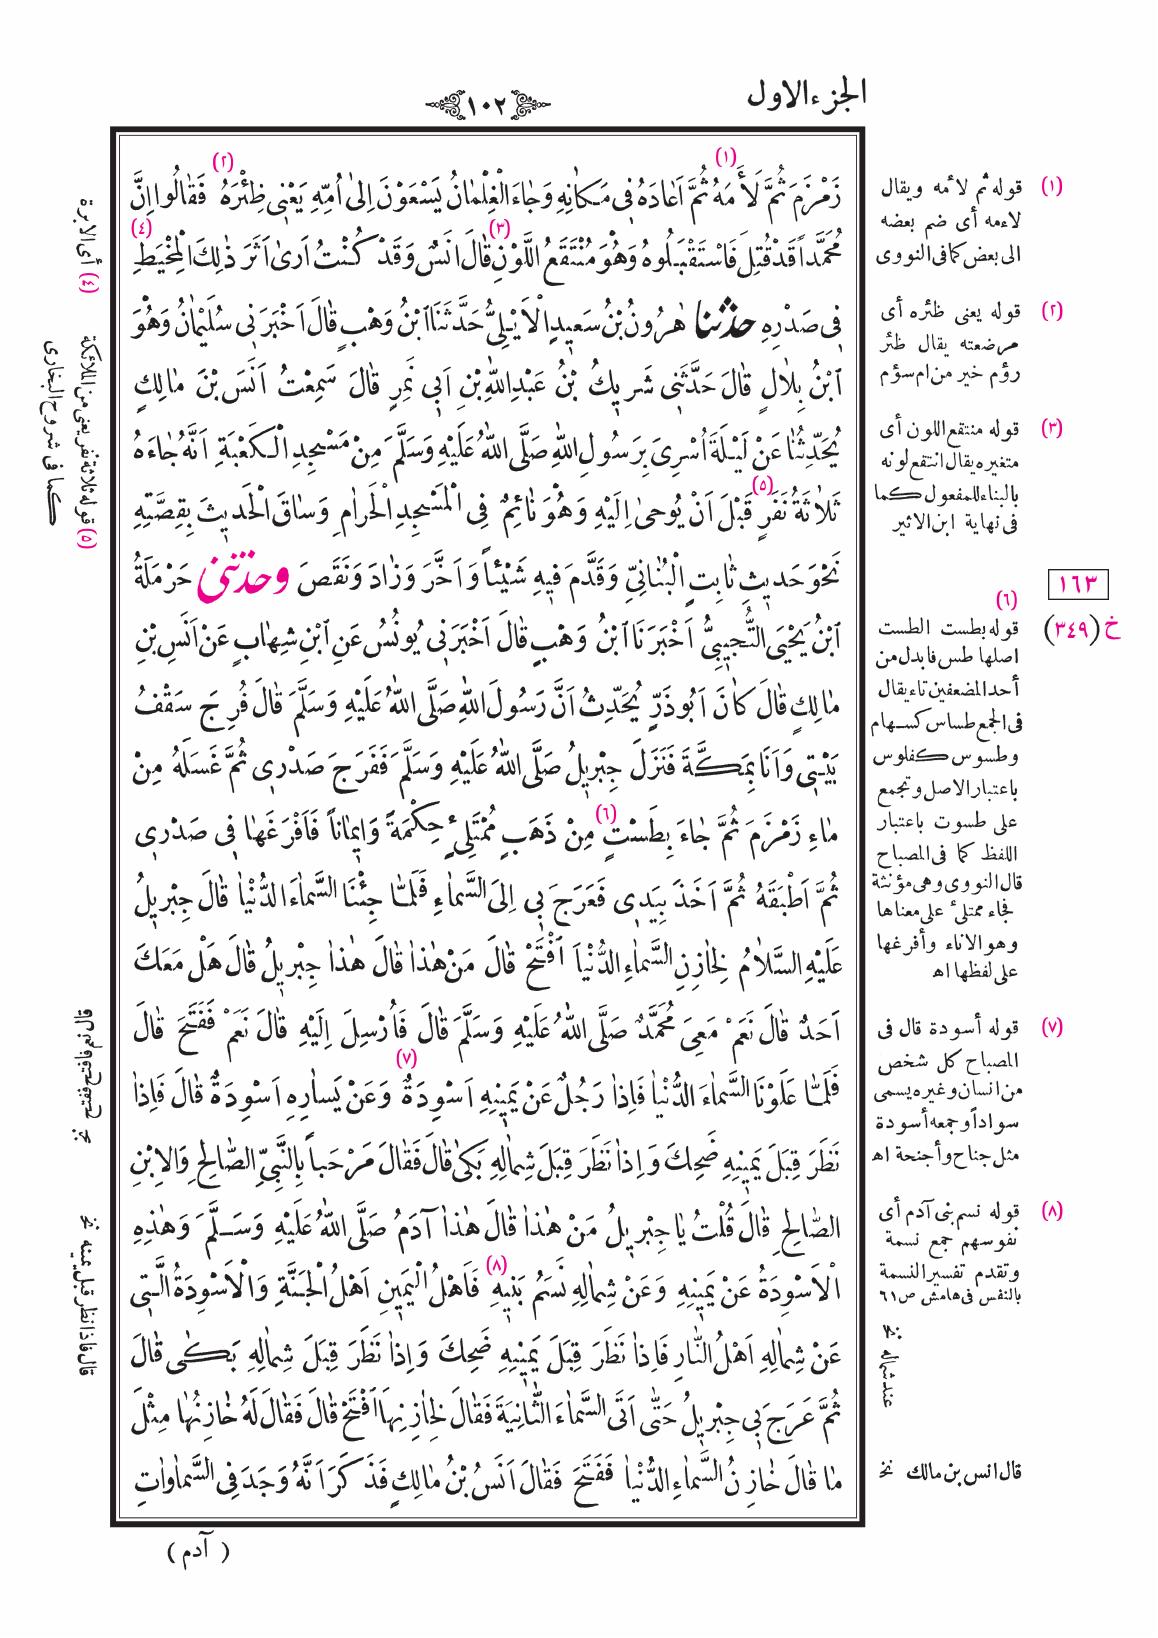 الجزء الاول
١٠٢
زَمْزَمَ ثُمَّ لَأَمَهُ ثُمَّ اَعَادَهُ فِى مَكَانِهِ وَجَاءَ الْغِلْمَانُ يَسْعَوْنَ اِلَى اُمِّهِ يَعْنِى ظِئْرَهُ فَقَالُوا اِنَّ
(١)
(٢)
مُحَمَّداً قَدْ قُتِلَ فَاسْتَقْبَلُوهُ وَهُوَ مُنْتَقَعُ اللَّوْنِ قَالَ اَنَسٌ وَقَدْ كُنْتُ اَرَى اَثَرَ ذٰلِكَ الْمِخْيَطِ
(٣)
(٤)
فِى صَدْرِهِ حدثنا هٰرُونُ بْنُ سَعِيدٍ الْاَيْلِىُّ حَدَّثَنَا ابْنُ وَهْبٍ قَالَ اَخْبَرَنِى سُلَيْمَانُ وَهُوَ
ابْنُ بِلَالٍ قَالَ حَدَّثَنِى شَرِيكُ بْنُ عَبْدِاللّٰهِ بْنِ اَبِى نَمِرٍ قَالَ سَمِعْتُ اَنَسَ بْنَ مَالِكٍ
يُحَدِّثُنَا عَنْ لَيْلَةَ اُسْرِىَ بِرَسُولِ اللّٰهِ صَلَّى اللّٰهُ عَلَيْهِ وَسَلَّمَ مِنْ مَسْجِدِ الْكَعْبَةِ اَنَّهُ جَاءَهُ
ثَلَاثَةُ نَفَرٍ قَبْلَ اَنْ يُوحَى اِلَيْهِ وَهُوَ نَائِمٌ فِى الْمَسْجِدِ الْحَرَامِ وَسَاقَ الْحَدِيثَ بِقِصَّتِهِ
(٥)
نَحْوَ حَدِيثِ ثَابِتٍ الْبُنَانِىِّ وَقَدَّمَ فِيهِ شَيْئاً وَاَخَّرَ وَزَادَ وَنَقَصَ وحدثنى حَرْمَلَةُ
ابْنُ يَحْيَى التُّجِيبِىُّ اَخْبَرَنَا ابْنُ وَهْبٍ قَالَ اَخْبَرَنِى يُونُسُ عَنِ ابْنِ شِهَابٍ عَنْ اَنَسِ بْنِ
مَالِكٍ قَالَ كَانَ اَبُو ذَرٍّ يُحَدِّثُ اَنَّ رَسُولَ اللّٰهِ صَلَّى اللّٰهُ عَلَيْهِ وَسَلَّمَ قَالَ فُرِجَ سَقْفُ
بَيْتِى وَاَنَا بِمَكَّةَ فَنَزَلَ جِبْرِيلُ صَلَّى اللّٰهُ عَلَيْهِ وَسَلَّمَ فَفَرَجَ صَدْرِى ثُمَّ غَسَلَهُ مِنْ
مَاءِ زَمْزَمَ ثُمَّ جَاءَ بِطَسْتٍ مِنْ ذَهَبٍ مُمْتَلِئٍ حِكْمَةً وَاِيمَاناً فَاَفْرَغَهَا فِى صَدْرِى
(٦)
ثُمَّ اَطْبَقَهُ ثُمَّ اَخَذَ بِيَدِى فَعَرَجَ بِى اِلَى السَّمَاءِ فَلَمَّا جِئْنَا السَّمَاءَ الدُّنْيَا قَالَ جِبْرِيلُ
عَلَيْهِ السَّلَامُ لِخَازِنِ السَّمَاءِ الدُّنْيَا اَفْتَحْ قَالَ مَنْ هٰذَا قَالَ هٰذَا جِبْرِيلُ قَالَ هَلْ مَعَكَ
اَحَدٌ قَالَ نَعَمْ مَعِىَ مُحَمَّدٌ صَلَّى اللّٰهُ عَلَيْهِ وَسَلَّمَ قَالَ فَاُرْسِلَ اِلَيْهِ قَالَ نَعَمْ فَفَتَحَ قَالَ
فَلَمَّا عَلَوْنَا السَّمَاءَ الدُّنْيَا فَاِذَا رَجُلٌ عَنْ يَمِينِهِ اَسْوِدَةٌ وَعَنْ يَسَارِهِ اَسْوِدَةٌ قَالَ فَاِذَا
(٧)
نَظَرَ قِبَلَ يَمِينِهِ ضَحِكَ وَاِذَا نَظَرَ قِبَلَ شِمَالِهِ بَكَى قَالَ فَقَالَ مَرْحَباً بِالنَّبِىِّ الصَّالِحِ وَالِابْنِ
الصَّالِحِ قَالَ قُلْتُ يَا جِبْرِيلُ مَنْ هٰذَا قَالَ هٰذَا آدَمُ صَلَّى اللّٰهُ عَلَيْهِ وَسَلَّمَ وَهٰذِهِ
الْاَسْوِدَةُ عَنْ يَمِينِهِ وَعَنْ شِمَالِهِ نَسَمُ بَنِيهِ فَاَهْلُ الْيَمِينِ اَهْلُ الْجَنَّةِ وَالْاَسْوِدَةُ الَّتِى
(٨)
عَنْ شِمَالِهِ اَهْلُ النَّارِ فَاِذَا نَظَرَ قِبَلَ يَمِينِهِ ضَحِكَ وَاِذَا نَظَرَ قِبَلَ شِمَالِهِ بَكَى قَالَ
ثُمَّ عَرَجَ بِى جِبْرِيلُ حَتَّى اَتَى السَّمَاءَ الثَّانِيَةَ فَقَالَ لِخَازِنِهَا اَفْتَحْ قَالَ فَقَالَ لَهُ خَازِنُهَا مِثْلَ
مَا قَالَ خَازِنُ السَّمَاءِ الدُّنْيَا فَفَتَحَ فَقَالَ اَنَسُ بْنُ مَالِكٍ فَذَكَرَ اَنَّهُ وَجَدَ فِى السَّمَاوَاتِ
( آدم )
(١) قوله ثم لأمه ويقال
لاءمه أى ضم بعضه
الى بعض كما فى النووى
(٢) قوله يعنى ظئره أى
مرضعته يقال ظئر
رؤم خير من ام سؤم
(٣) قوله منتقع اللون أى
متغيره يقال انتقع لونه
بالبناء للمفعول كما
فى نهاية ابن الاثير
١٦٣
خ (٣٤٩)
(٦)
قوله بطست الطست
اصلها طس فابدل من
أحد المضعفين تاء يقال
فى الجمع طساس كسهام
وطسوس كفلوس
باعتبار الاصل وتجمع
على طسوت باعتبار
اللفظ كما فى المصباح
قال النووى وهى مؤنثة
فجاء ممتلئ على معناها
وهو الاناء وأفرغها
على لفظها اه
(٧) قوله أسودة قال فى
المصباح كل شخص
من انسان وغيره يسمى
سواداً وجمعه أسودة
مثل جناح وأجنحة اه
(٨) قوله نسم بنى آدم أى
نفوسهم جمع نسمة
وتقدم تفسير النسمة
بالنفس فى هامش ص ٦١
عند شماله نخ
قال انس بن مالك نخ
(٤) أى الابرة
(٥) قوله ثلاثة نفر يعنى من الملائكة
كما فى شروح البخارى
قال فاذا نظر قبل يمينه نخ